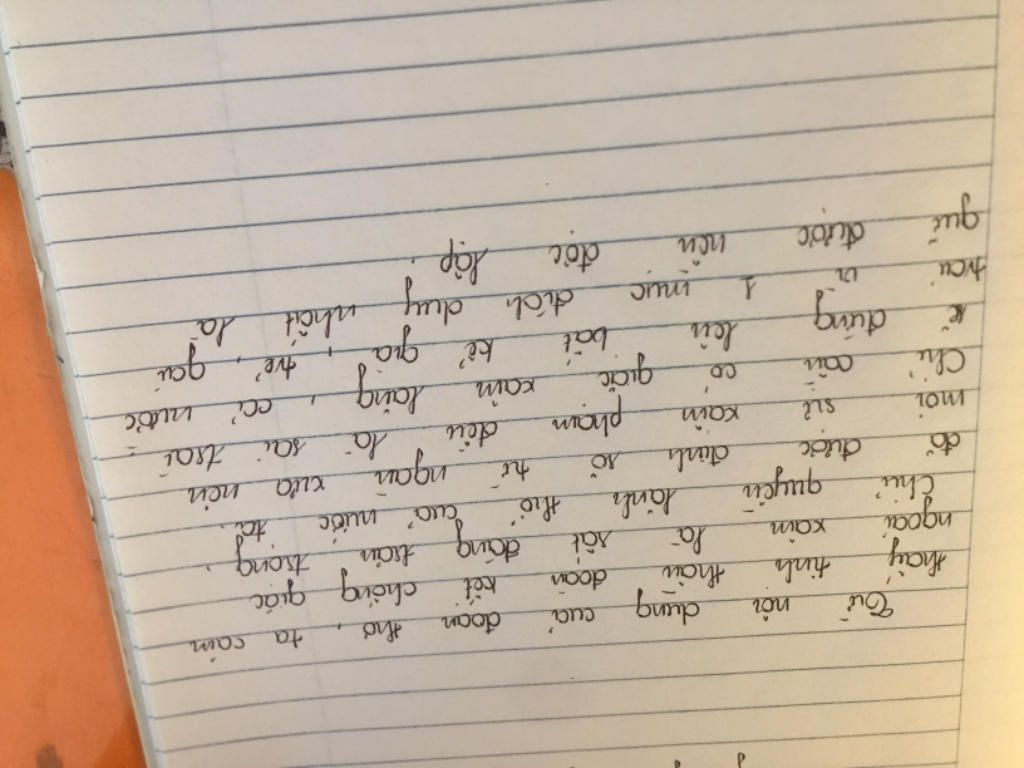 Từ nội dung của đoạn thơ, ta cảm
thấy tinh thần đoàn kết chống giặc
ngoại xâm là rất đáng trân trọng.
Chủ quyền lãnh thổ của nước ta
đã được định rõ từ ngàn xưa nên
mọi sự xâm phạm đều là sai trái
Chỉ cần có giặc xâm lăng, cả nước
sẽ đứng lên bất kể già, trẻ, gái
trai vì 1 mục đích duy nhất là
giữ được nền độc lập.